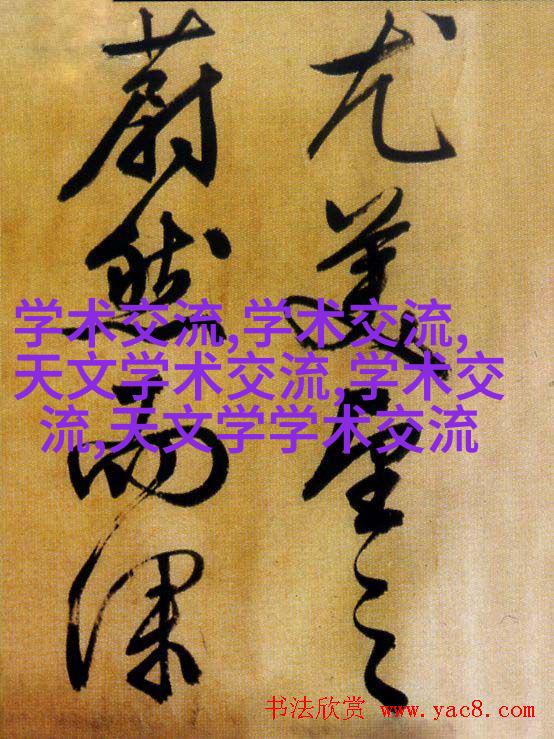 尤美望之
蔚然而深
学术交流,学术交流,
天文学术交流,学术交
流,天文学学术交流
书法欣赏 www.yac8.com